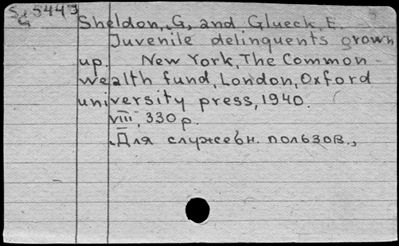 Sheldon, G, and Glueck, E.
Juvenile delinquents grown
up. New York, The Common-
wealth fund, London, Oxford
university press, 1940.
VIII, 330 p.
Для служебн. пользов.,